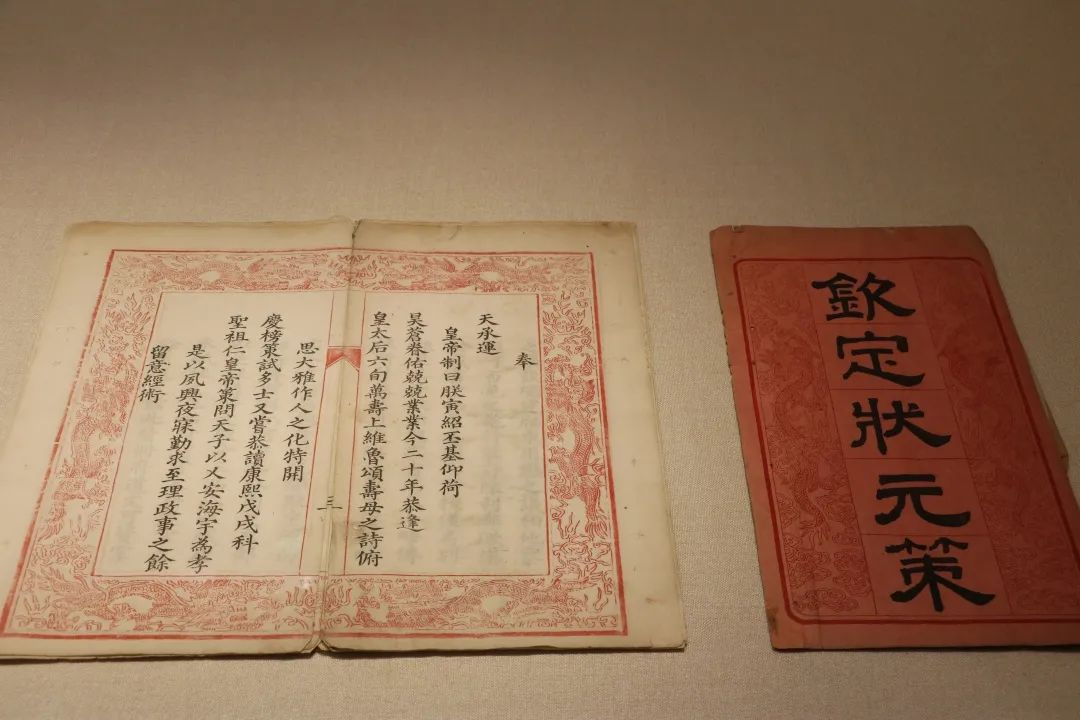 欽定狀元策
奉
天承運
皇帝制曰朕寅紹丕基仰荷
昊蒼眷佑兢兢業業今二十年恭逢
皇太后六旬萬壽上維魯頌壽母之詩俯
三
思大雅作人之化特開
慶榜策試多士又嘗恭讀康熙戊戌科
聖祖仁皇帝策問天子以乂安海宇為孝
是以夙興夜寐勤求至理政事之餘
留意經術